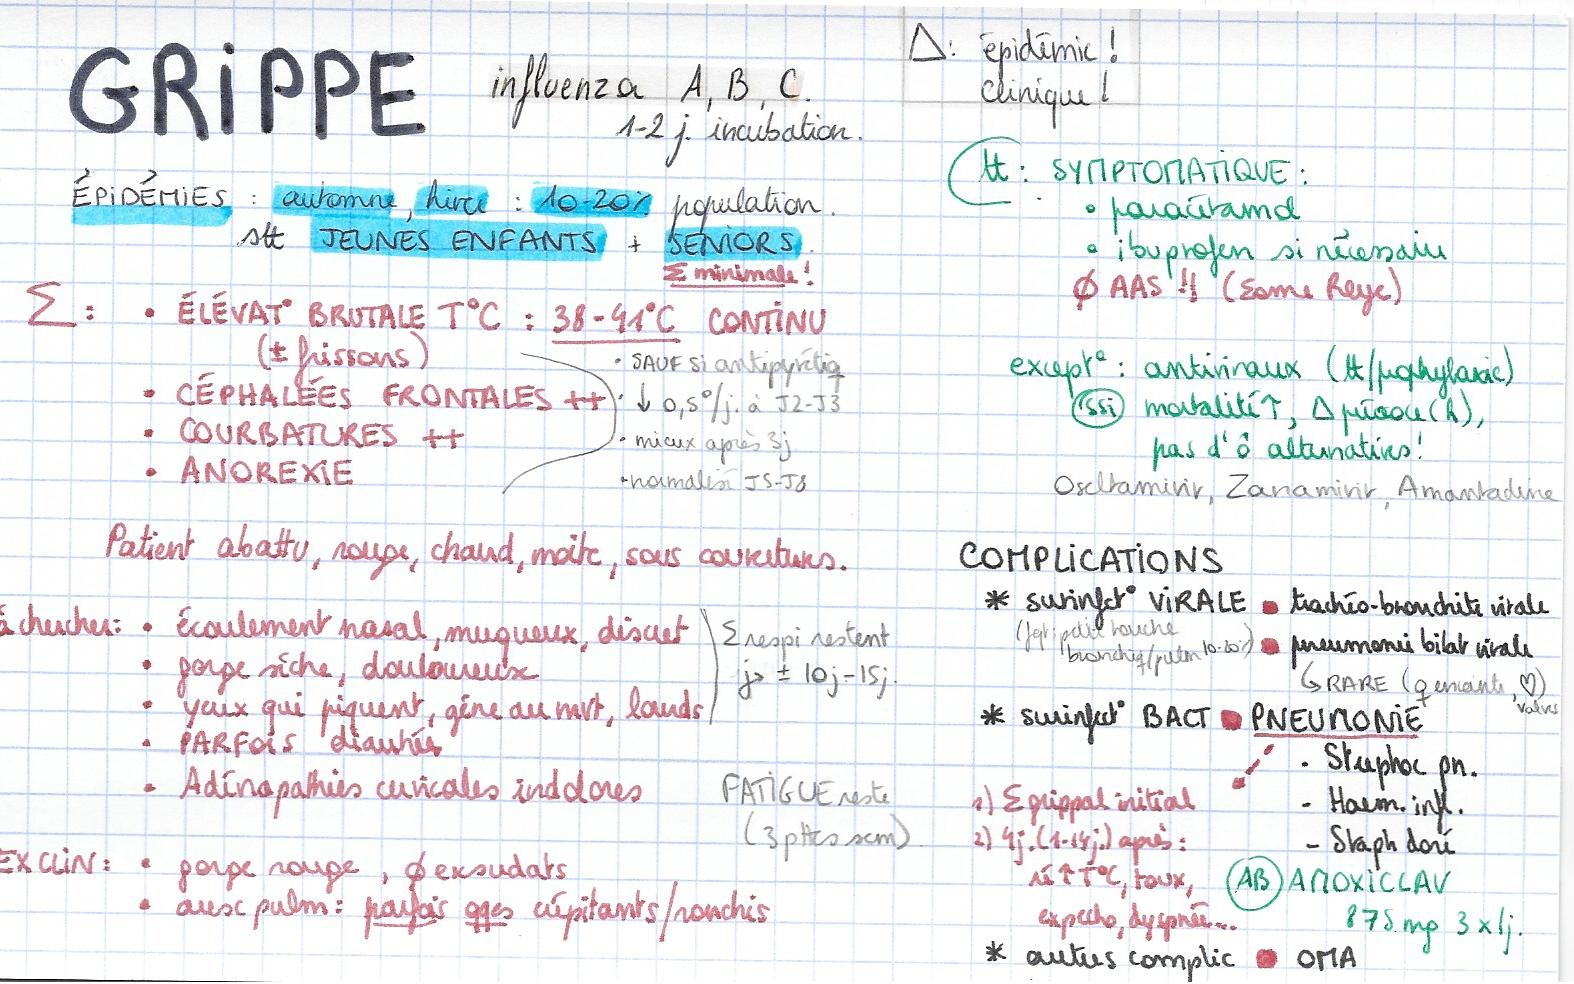 GRIPPE
influenza A, B, C.
1-2 j. incubation.
ÉPIDÉMIES : automne, hiver : 10-20% population.
stt JEUNES ENFANTS + SENIORS.
Σ minimale !
Σ : • ÉLÉVAT° BRUTALE T°C : 38-41°C CONTINU
(± frissons)
• SAUF si antipyrétiq
• CÉPHALÉES FRONTALES ++
• ↓ 0,5°/j. à J2-J3
• COURBATURES ++
• mieux après 3j
• ANOREXIE
• normalisé J5-J8
Patient abattu, rouge, chaud, moite, sous couvertures.
à chercher : • écoulement nasal, muqueux, discret
• gorge sèche, douloureuse
• yeux qui piquent, gêne au mvt, lourds
Σ respi restent
jq ± 10j-15j.
• PARFOIS diarrhée
• Adénopathies cervicales indolores
FATIGUE reste
(3 pttes sem)
EX CLIN : • gorge rouge, ∅ exsudats
• ausc pulm : parfois qqes crépitants/ronchis
Δ : épidémie !
clinique !
tt : SYMPTOMATIQUE :
• paracétamol
• ibuprofen si nécessaire
∅ AAS !! (Sdme Reye)
except° : antiviraux (tt/prophylaxie)
ssi mortalité ↑, Δ précoce (h),
pas d'ô alternatives !
Oseltamivir, Zanamivir, Amantadine
COMPLICATIONS
* surinfect° VIRALE • trachéo-bronchite virale
bronchiq/pulm 10-20%) • pneumonie bilat virale
↳ RARE (♀ enceinte, ♡ valves)
* surinfect° BACT • PNEUMONIE
- Strephoc pn.
- Haem. infl.
- Staph doré
1) Σ grippal initial
2) 4j. (1-14j.) après :
ré ↑ T°C, toux,
expecto, dyspnée...
AB AMOXICLAV
875 mg 3x/j.
* autres complic • OMA